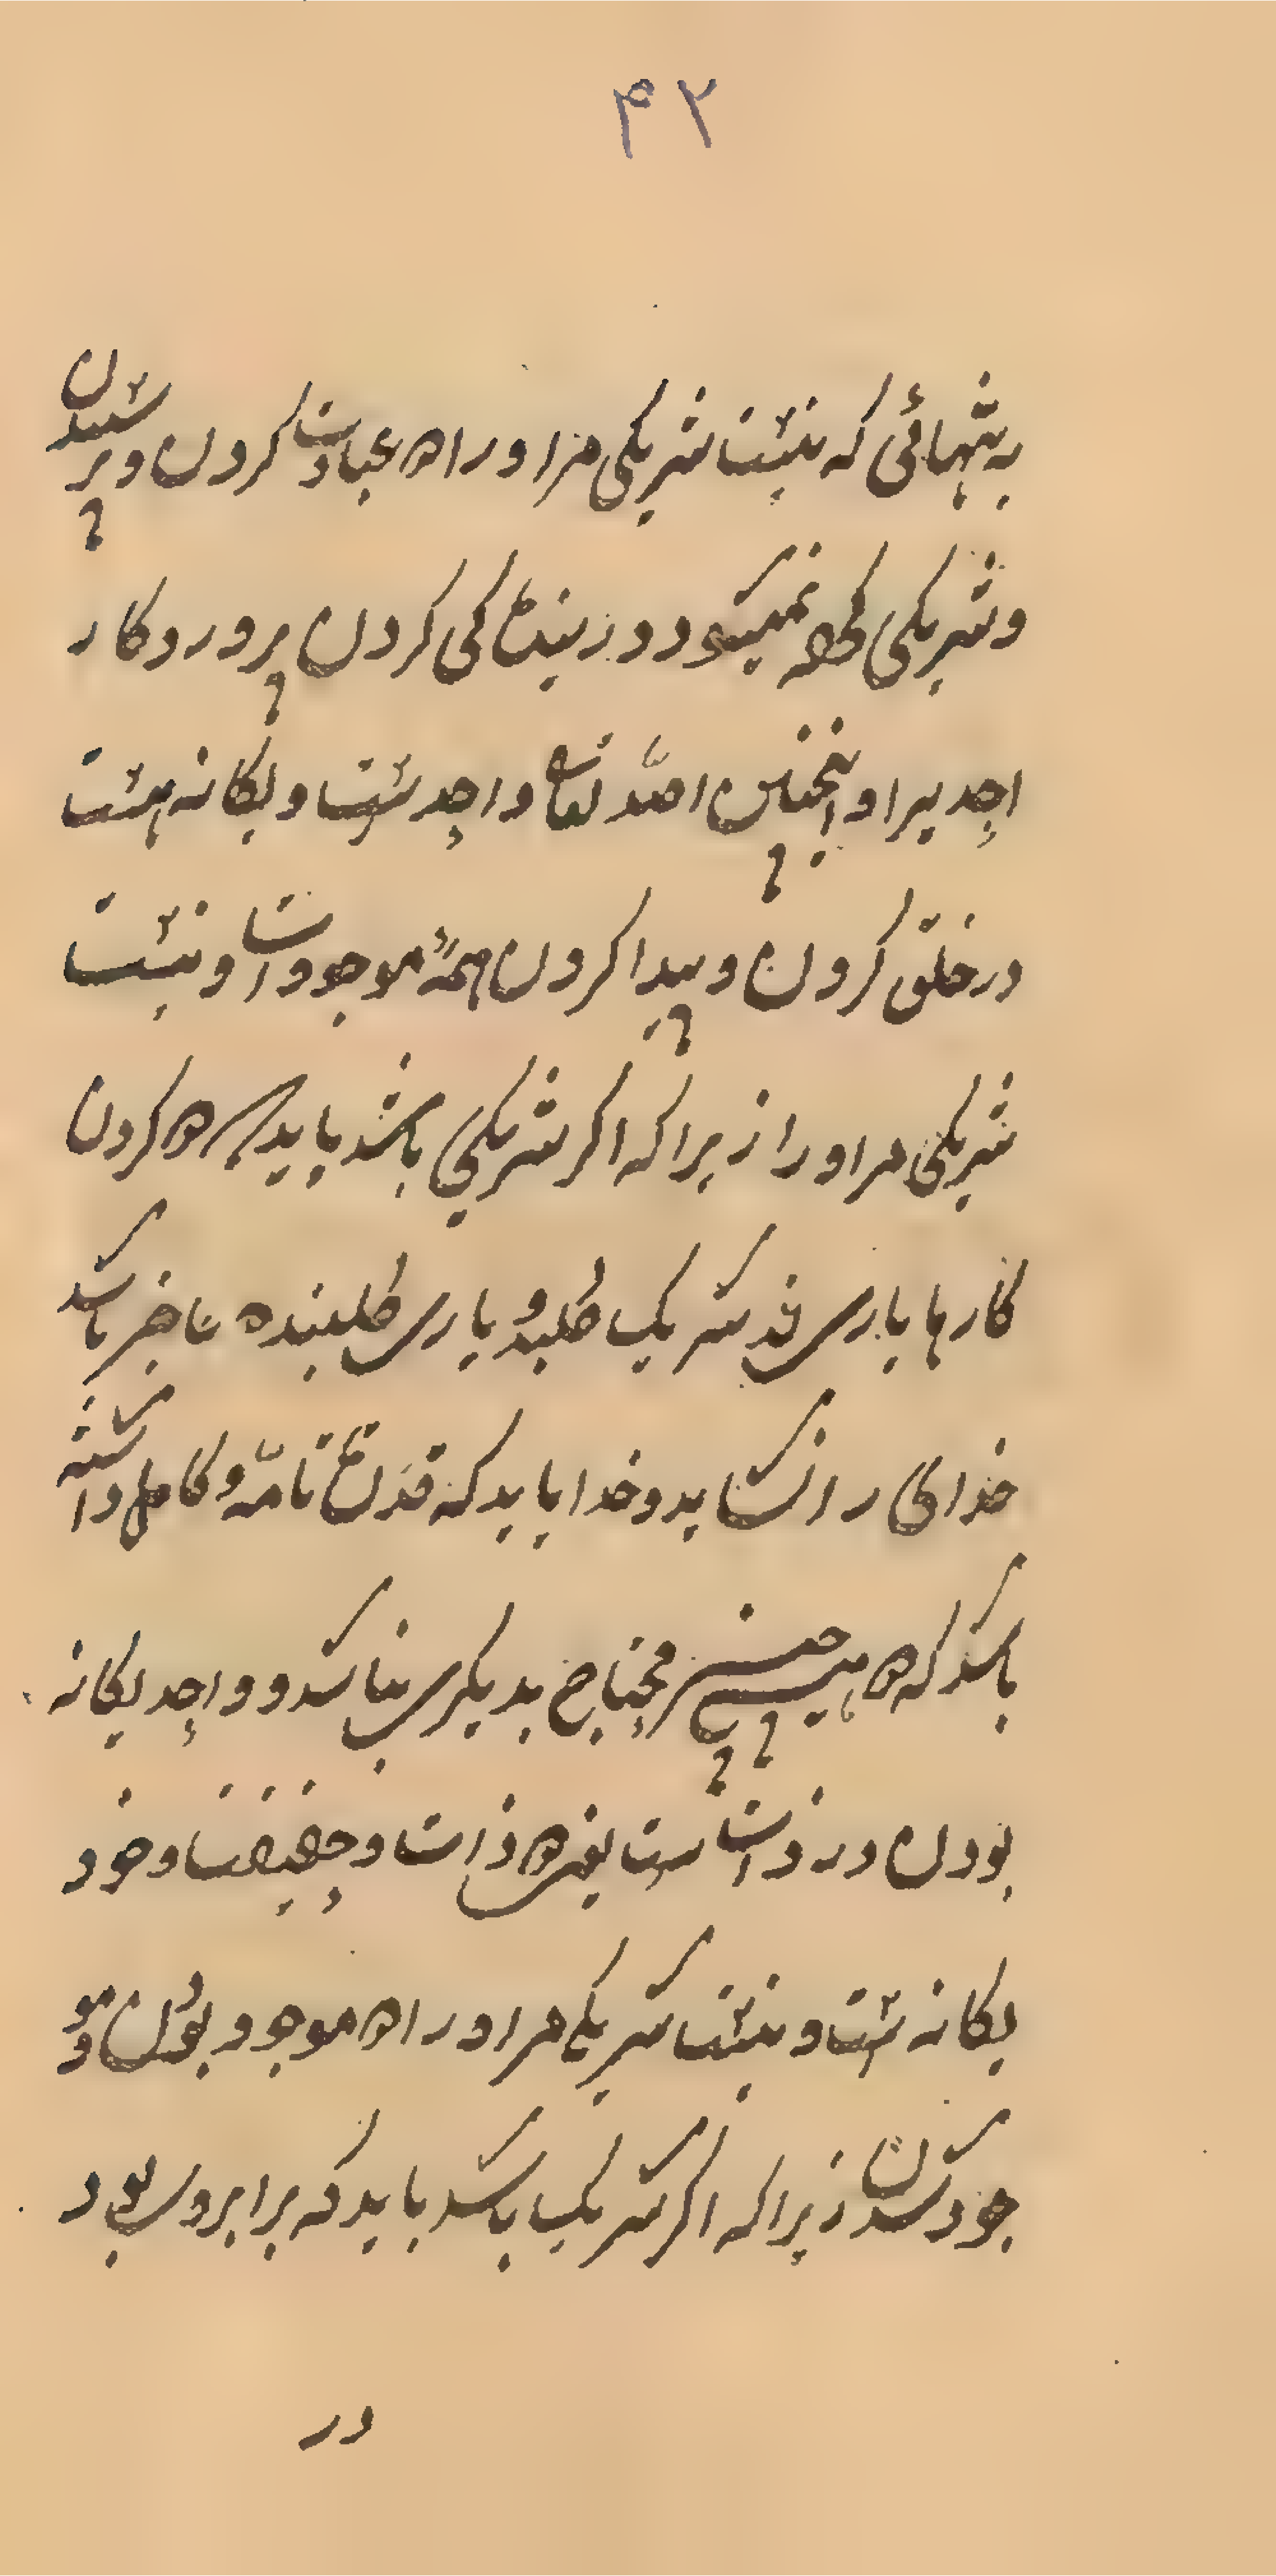 ۴۲
به تنهائی که نیست شریکی مر او را در عبادت کردن و پرستیدن
و شریکی نمیکند در بندگی کردن پروردگار
احدیرا و اینچنین الله تعالی واحدست و یکانه هست
در خلق کردن و پیدا کردن همهٔ موجودات و نیست
شریکی مر او را زیرا که اکر شریکی باشد باید در کردن
کارها یاری از شریک طلبد و یاری طلبنده عاجز باشد
خدای را نشاید و خدا باید که قدرت تامّه و کامل داشته
باشد که هیچ چیز محتاج بدیکری نباشد و واحد یکانه
بودن در ذات است یعنی ذات و حقیقت خود
یکانه است و نیست شریکی مر او را در موجود بودن و مو
جود شدن زیرا که اکر شریک باشد باید که برابر وی بود
در